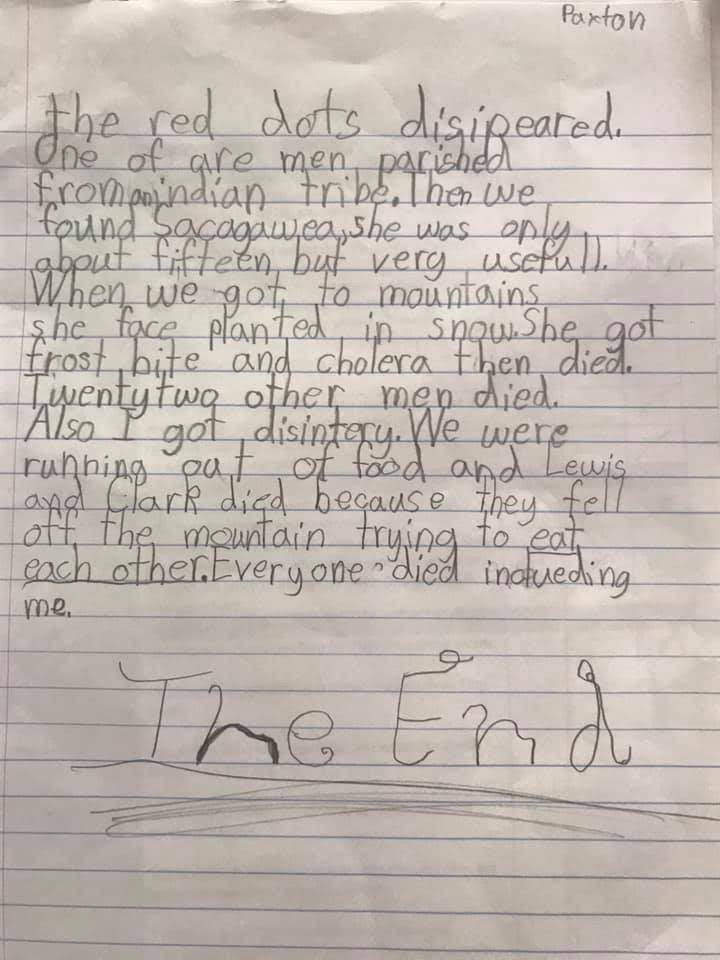 Paxton
the red dots disipeared.
One of are men parished
from an indian tribe. Then we
found Sacagawea, she was only
about fifteen but very usefull.
When we got to mountains
she face planted in snow. She got
frost bite and cholera then died.
Twentytwo other men died.
Also I got disintery. We were
running out of food and Lewis
and Clark died because they fell
off the mountain trying to eat
each other. Everyone died inclueding
me.
The End